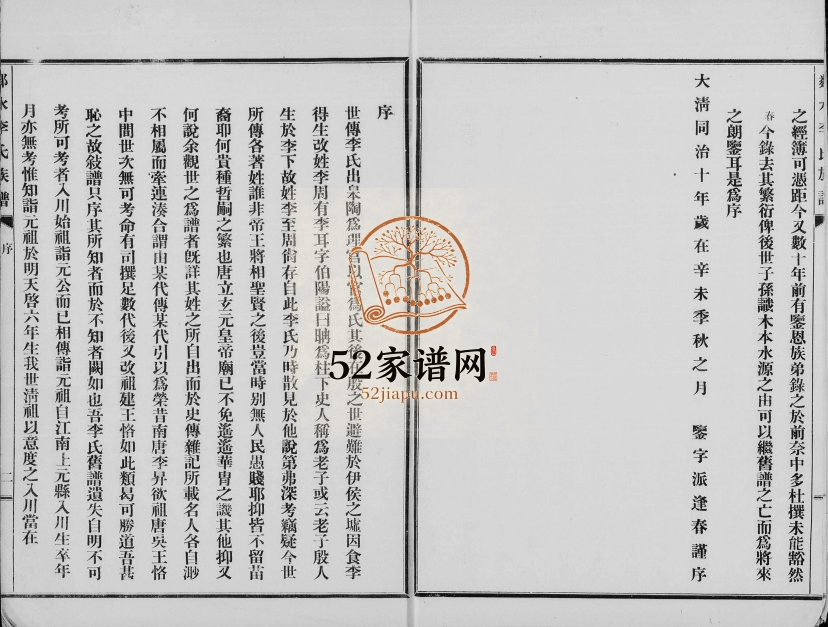 之經簿可憑距今又數十年前有鑒恩族弟錄之於前奈中多杜撰未能豁然
春今錄去其繁衍俾後世子孫識木本水源之由可以繼舊譜之亡而爲將來
之朗鑒耳是爲序
大清同治十年歲在辛未季秋之月 鑒字派逢春謹序
序
世傳李氏出皋陶爲理官以官爲氏其後在殷之世避難於伊侯之墟因食李
得生改姓李周有李耳字伯陽謚曰聃爲柱下史人稱爲老子或云老子殷人
生於李下故姓李至周尙存自此李氏乃時散見於他說第弗深考竊疑今世
所傳各著姓誰非帝王將相聖賢之後豈當時別無人民愚賤耶抑皆不留苗
裔耶何貴種哲嗣之繁也唐立玄元皇帝廟已不免遙遙華胄之譏其他抑又
何說余觀世之爲譜者旣詳其姓之所自出而於史傳雜記所載名人各自渺
不相屬而牽連湊合謂由某代傳某代引以爲榮昔南唐李昪欲祖唐吳王恪
中間世次無可考命有司撰足數代後又改祖建王恪如此類曷可勝道吾甚
恥之故敍譜只序其所知者而於不知者闕如也吾李氏舊譜遺失自明不可
考所可考者入川始祖詣元公而已相傳詣元祖自江南上元縣入川生卒年
月亦無考惟知詣元祖於明天啓六年生我世淸祖以意度之入川當在
李氏族譜
序
二
52家谱网
52jiapu.com